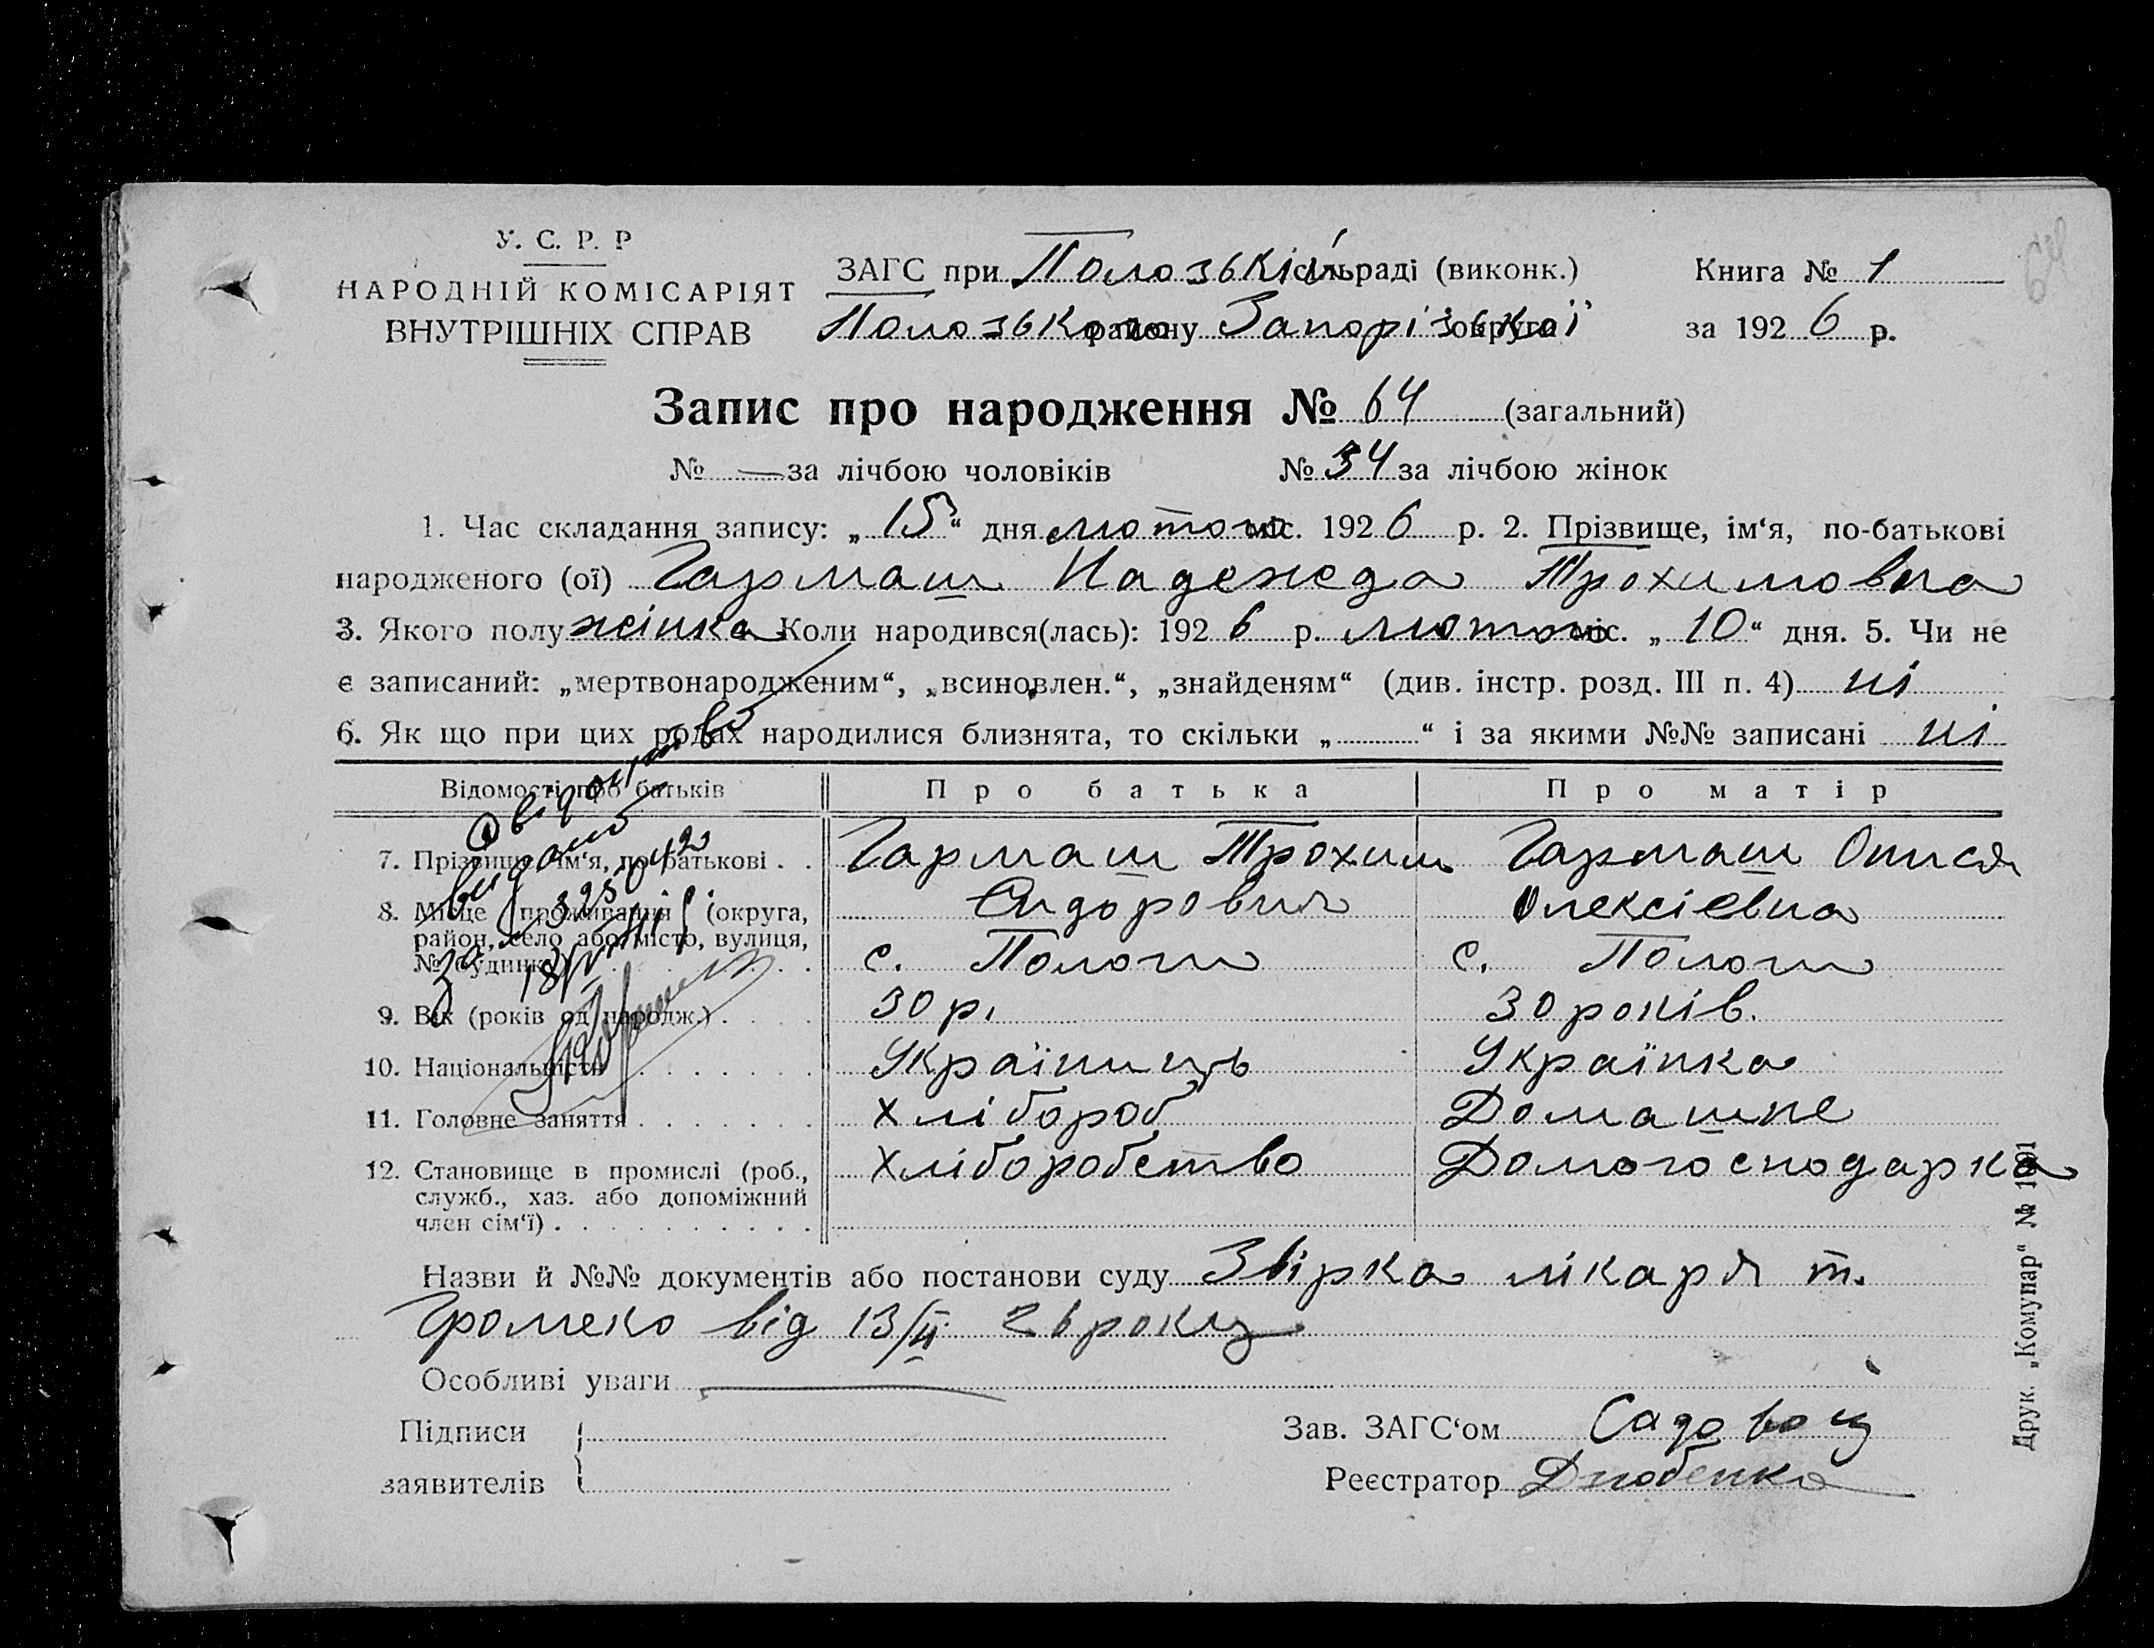 64
У. С. Р. Р
НАРОДНІЙ КОМІСАРІЯТ
ВНУТРІШНІХ СПРАВ
ЗАГС при Полозькій сільраді (виконк.)
Полозького району Запорізької округи
Книга № 1
за 1926 р.
Запис про народження № 64 (загальний)
№ — за лічбою чоловіків № 34 за лічбою жінок
1. Час складання запису: „15“ дня лютого міс. 1926 р. 2. Прізвище, ім‘я, по-батькові
народженого (ої) Гармаш Надежда Трохимовна
3. Якого полу жінка Коли народився(лась): 1926 р. лютого міс. „10“ дня. 5. Чи не
є записаний: „мертвонародженим“, „всиновлен.“, „знайденям“ (див. інстр. розд. III п. 4) ні
6. Як що при цих родах народилися близнята, то скільки „ “ і за якими №№ записані ні
Відомості про батьків Про батька Про матір
7. Прізвище, ім‘я, по-батькові . . Гармаш Трохим Гармаш Онися
Сидорович Олексіевна
8. Місце проживання (округа,
район, село або місто, вулиця,
№ будинка) с. Пологи с. Пологи
9. Вік (років од народж.) . . . . 30 р. 30 років.
10. Національність . . . . . . . Українець Українка
11. Головне заняття . . . . . . . Хлібороб Домашне
12. Становище в промислі (роб.,
служб., хаз. або допоміжний
член сім‘ї) . . . . . . . . . . Хліборобство Домогосподарка
Свідоцтво
видано
За № 325042
Назви й №№ документів або постанови суду Звірка лікаря т.
Громеко від 13/II 26 року
Особливі уваги
Підписи
заявителів
Зав. ЗАГС‘ом Садовой
Реєстратор Дзюбенко
Друк. „Комунар“ № 1001